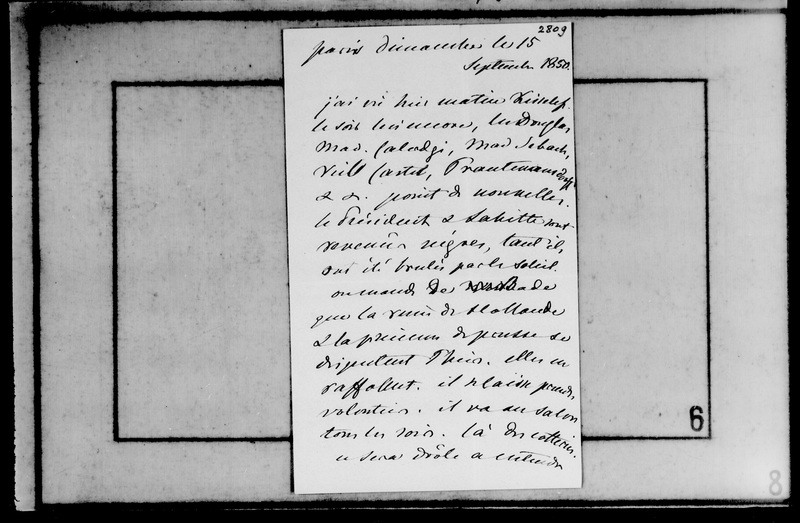 2809
paris dimanche le 15
Septembre 1850.
j'ai vu hier matin Kisseleff
le soir lui encore, les Douglas
Mad. Calerdgi, Mad. Sebach,
Viel Castel, Trautmansdorff
& &. point de nouvelles.
le Président & Lahitte sont
revenus nègres, tant ils
ont été brulés par le soleil.
on mande de Bade
que la reine de Hollande
& la princesse de prusse se
disputent Thiers. elles en
raffolent. il se laisse prendre
volontiers. il va au salon
tous les soirs. là des cotteries.
ce sera drôle a entendre
6
8